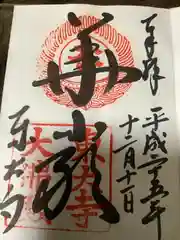 奉拝 平成二五年
十二月十一日
華嚴
東大寺
東大寺